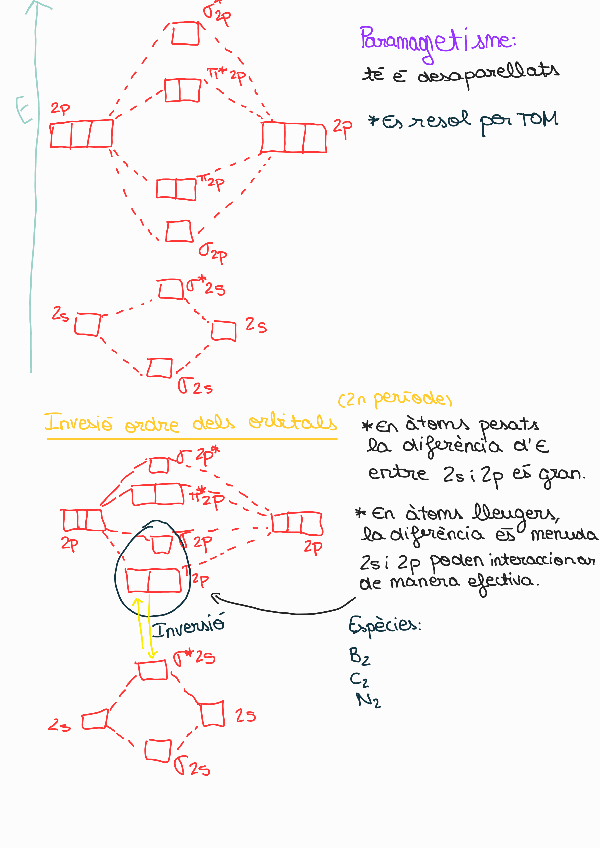 σ*2p
Paramagnetisme:
té ē desaparellats
π*2p
E
2p
2p
*Es resol per TOM
π2p
σ2p
σ*2s
2s
2s
σ2s
(2n període)
Invesió ordre dels orbitals
*En àtoms pesats
la diferència d'E
entre 2s i 2p és gran.
σ 2p*
π*2p
2p
2p
σ 2p
π 2p
*En àtoms lleugers,
la diferència és menuda
2s i 2p poden interaccionar
de manera efectiva.
Inversió
Espècies:
B₂
C₂
N₂
σ*2s
2s
2s
σ2s